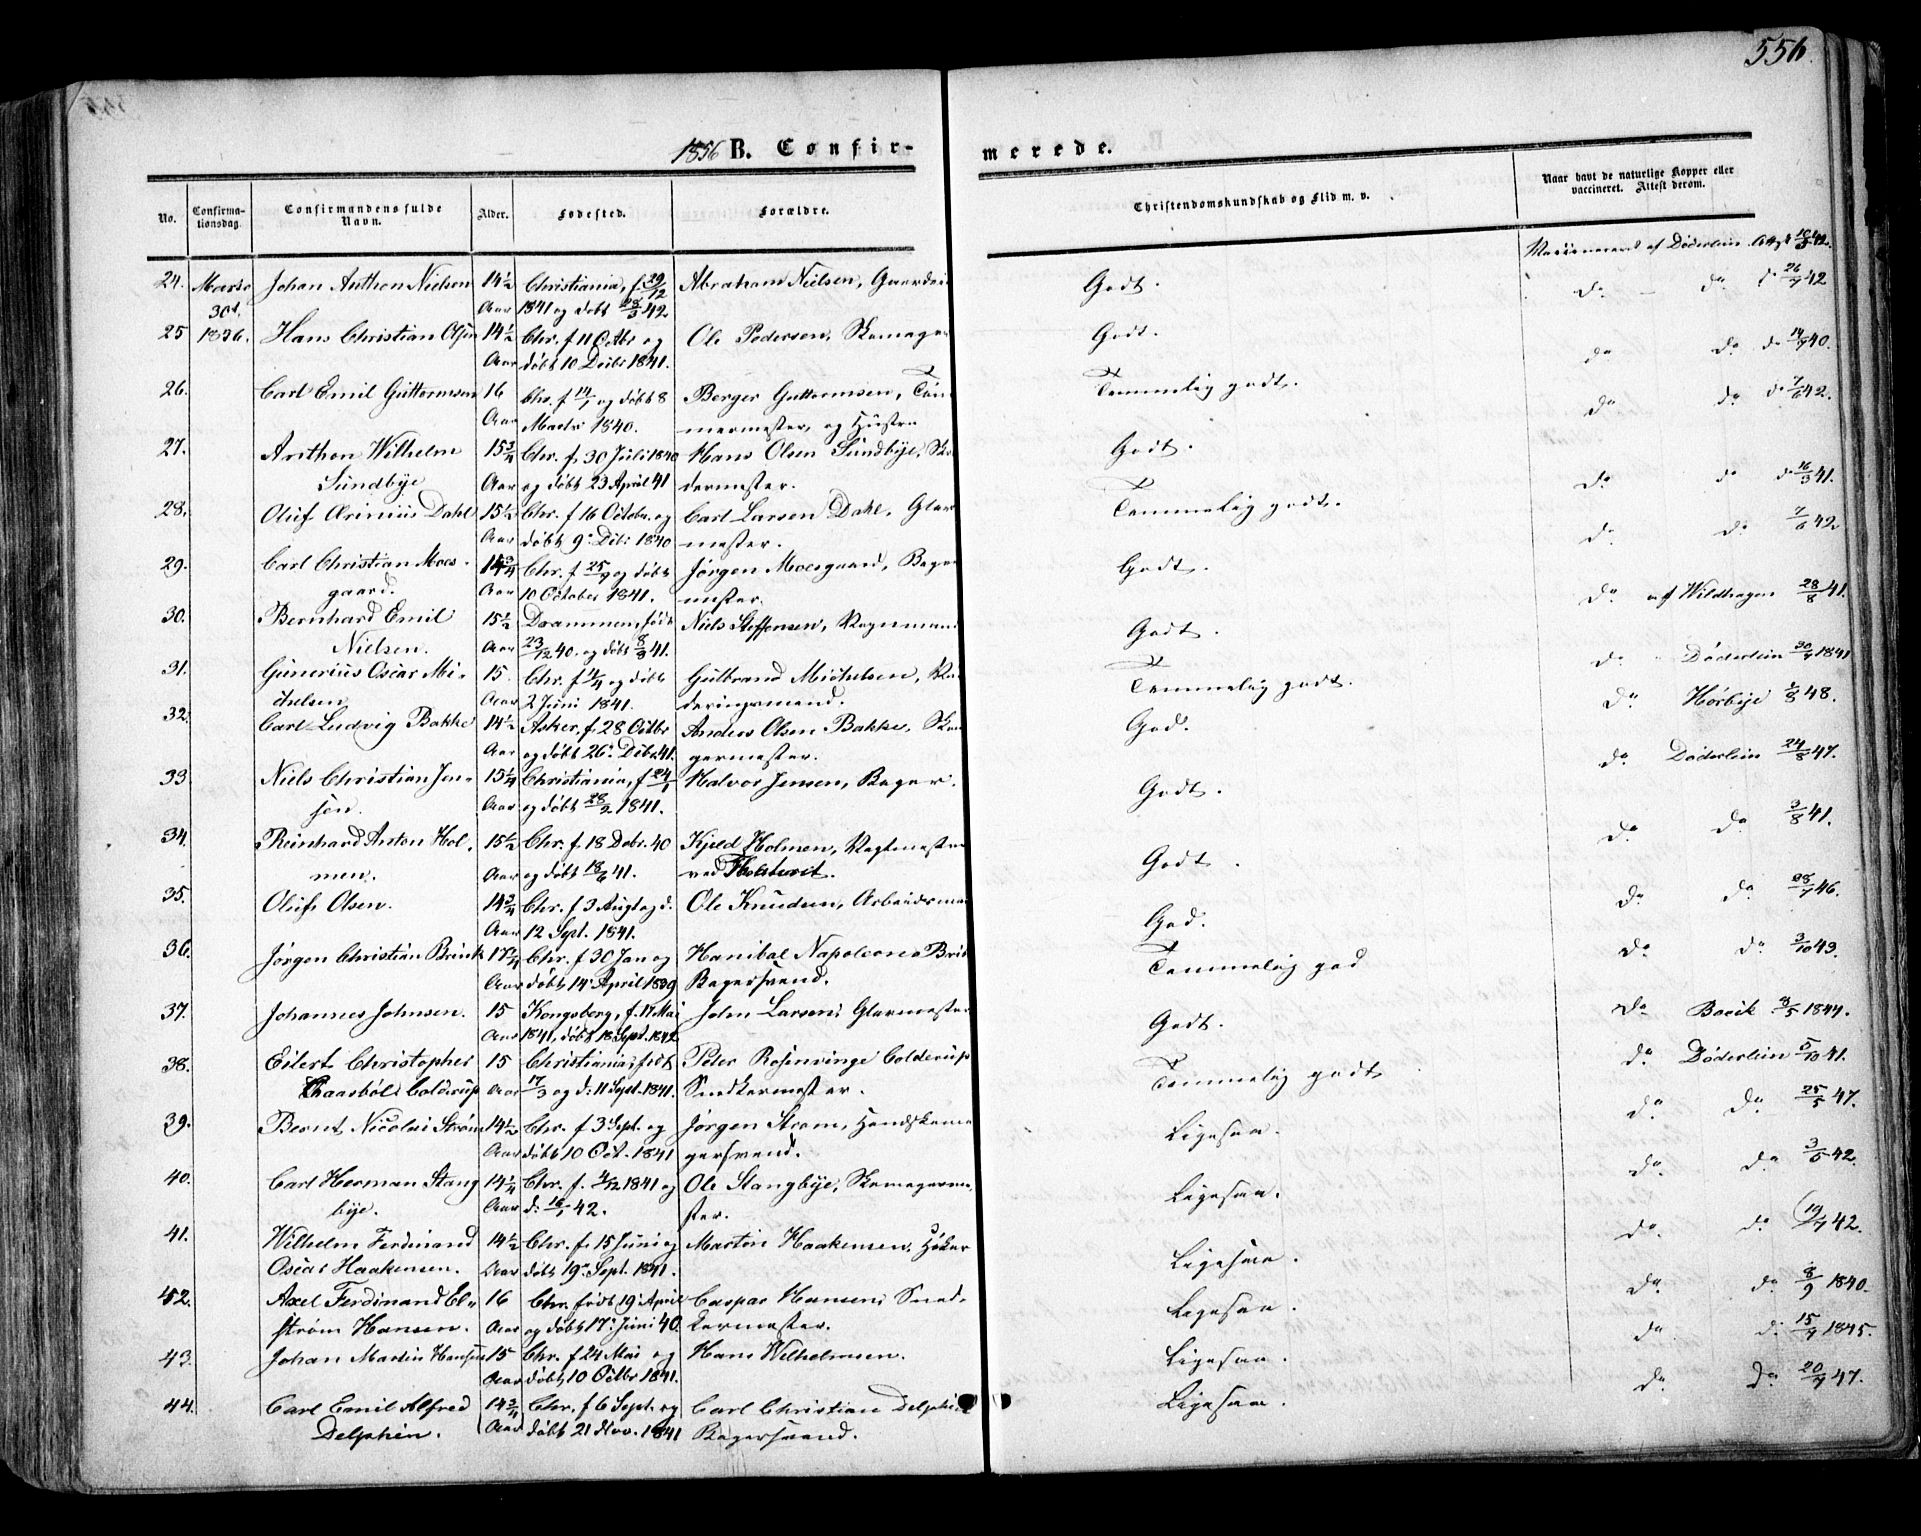 556.
1856 B. Confir-
merede.
No.
Confirma-
tionsdag.
Confirmandens fulde
Navn.
Alder.
Fødested.
Forældre.
Christendomskundskab og Flid m. v.
Naar havt de naturlige Kopper eller
vaccineret. Attest derom.
24. Marts Johan Anthon Nielsen 14½ Christiania, f. 29/12 Abraham Nielsen,
30te Aar 1841 og døbt 28/3 42.
Godt.
25 1856. Hans Christian Olsen 14½ Chr. f 11 Octbr og Ole Pedersen, Skomager
Aar døbt 10 Decbr 1841.
Godt.
26. Carl Emil Guttormsen 16 Chr. f 14/1 og døbt 8 Berger Guttormsen, Tøm
Aar Marts 1840. mermester, og Hustru
Temmelig godt.
27. Anthon Wilhelm 15¾ Chr. f. 30 Juli 1840 Hans Olsen Sundbye,
Sundbye Aar og døbt 23 April 41 dermester.
Godt.
28. Oluf Dahl 15½ Chr. f 16 Octobr. og Carl Larsen Dahl, Glar
Aar døbt 9de 1840 mester.
Temmelig godt.
29. Carl Christian Moes- 14¾ Chr. f 25/ og døbt Jørgen Moesgaard, Bager
gaard. Aar 10 October 1841. mester.
Godt.
30. Bernhard Emil 15½ Drammen, født Niels Steffensen,
Nielsen. Aar 23/12 40. og døbt 8/3 41.
Godt.
31. Gunerius Oscar Mi- 15. Chr. f /4 og døbt Gulbrand Michelsen,
chelsen Aar 2 Juni 1841.
Temmelig godt.
32. Carl Ludvig Bakke 14½ Asker, f. 28 Octbr Anders Olsen Bakke, Sko
Aar og døbt 26de Decbr 41. germester.
God.
33. Niels Christian Jen- 15¼ Christiania, f 24/1 Halvor Jensen, Bager.
sen. Aar og døbt 28/2 1841.
Godt.
34. Reinhard Anton Hol- 15½ Chr. f. 18 Debr. 40 Kjeld Holmen, Vagtmester
men. Aar og døbt 18/ 41. ved
Godt.
35. Oluf Olsen. 14¾ Chr. f 3 Augt og d. Ole Knudsen, Arbeidsma
Aar 12 Sept. 1841.
God.
36. Jørgen Christian Brink Chr. f 30 Jan og Hanibal Napoleon
Aar døbt 14de April 1839 Bagersvend.
Temmelig god
37. Johannes Johnsen. 15 Kongsberg, f. 17 Mai John Larsen, Glarmester
Aar 1841, døbt 18 Sept. 1842
Godt.
38. Eilert Christopher 15 Christiania, født Peter Rosenvinge Colderup
Colderup Aar 17/3 og d: 11 Sept. 1841. Snedkermester.
Temmelig godt
39. Bernt Nicolai Strøm 14½ Chr. f 3 Sept. og Jørgen Strøm, Handskema
Aar døbt 10 Oct. 1841 gersvend.
Ligesaa.
40. Carl Herman Stang 14¼ Chr. f. /12 1841 og Ole Stangbye, Skomagerme
bye. Aar d: 16/1 42. ster.
Ligesaa.
41. Wilhelm Ferdinand 14½ Chr. f. 15 Juni og Martin Haakensen, Høker
Oscar Haakensen. Aar døbt 19de Sept. 1841.
Ligesaa.
42. Axel Ferdinand El- 16 Chr. født 19de April Caspar Hansen, Sned-
strøm Hansen. Aar og døbt 17de Juni 40. kermester.
Ligesaa.
43. Johan Martin Hansen 15 Chr. f 24 Mai og Hans Wilhelmsen.
Aar døbt 10 Octbr 1841.
Ligesaa.
44. Carl Emil Alfred 14¾ Chr. f 6 Sept. og Carl Christian Delphin
Delphin. Aar døbt 21 Nov. 1841 Bagersvend.
Ligesaa.
Vaccineret af Døderlein Attest
do do 42
do do do 40.
do do do 42.
do do do 16/3 41.
do do 7/6 42
do af Wildhagen 28/8 41.
do Døderlein 1841
do Hørbye 48.
do Døderlein 24/8 47.
do do 3/8 41.
do do 46.
do do 3/10 43.
do 1844.
do Døderlein 5/10 41.
do do 25/5 47.
do do 42.
do do 42.
do do 8/9 1840.
do do 1845.
do do 47.